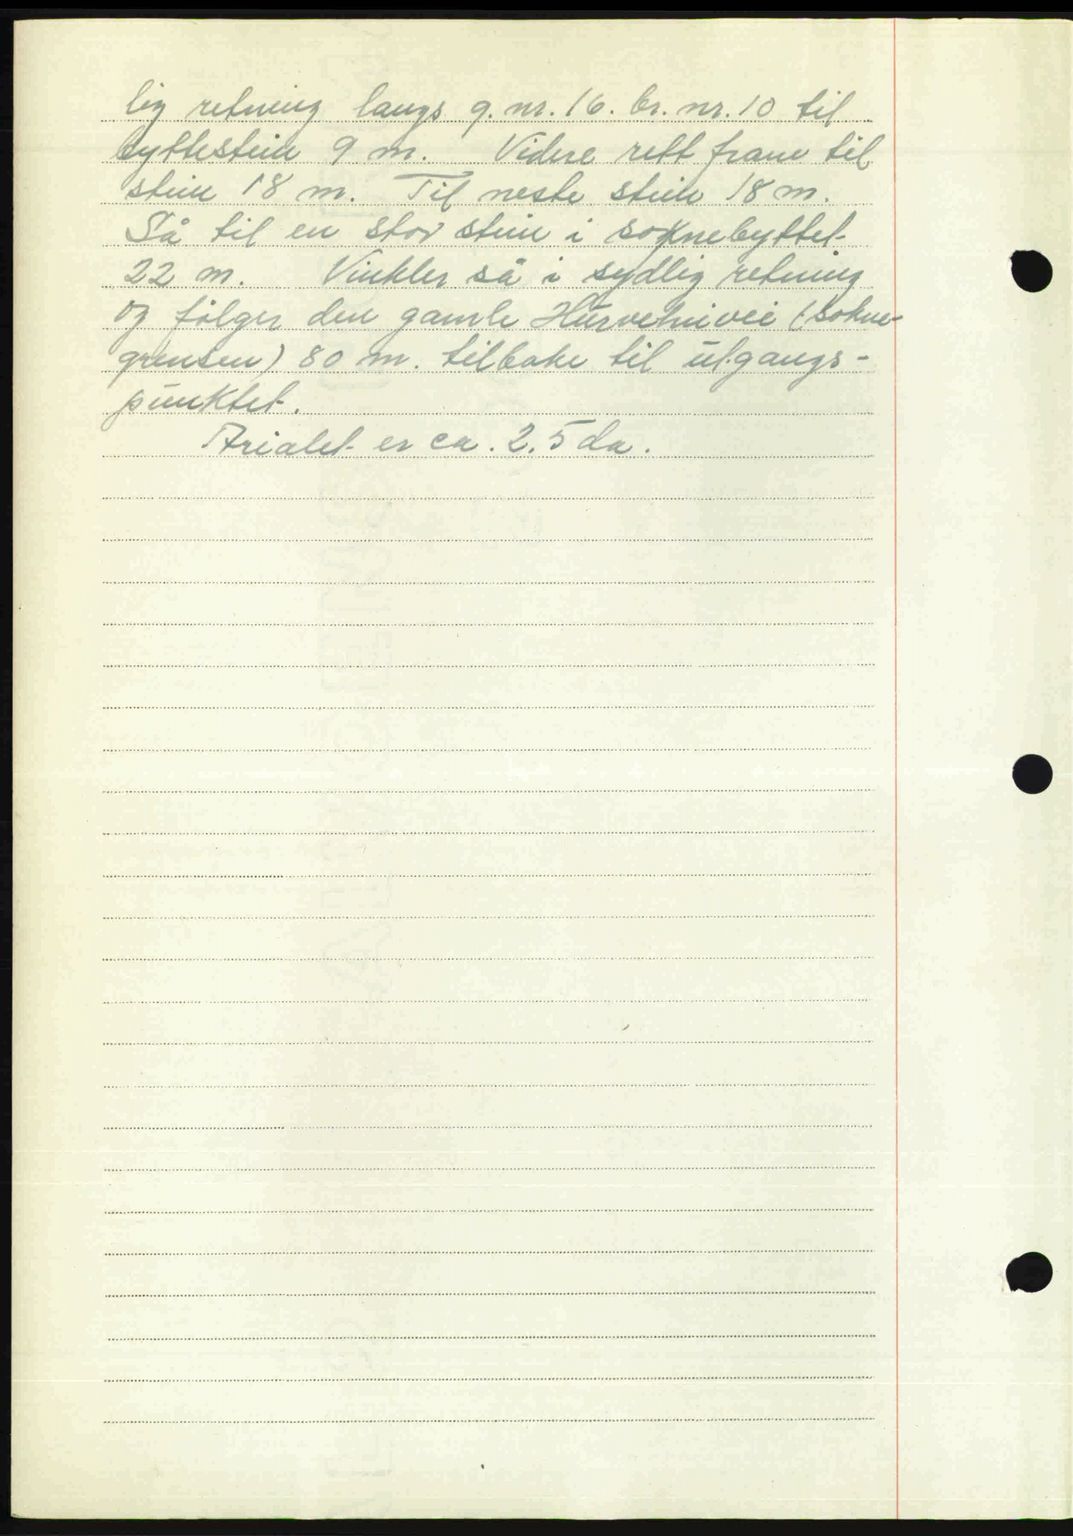 lig retning langs g.nr. 16. br. nr. 10 til
byttestein 9 m. Videre rett fram til
stein 18 m. Til neste stein 18 m.
Så til en stor stein i soknebyttet
22 m. Vinkler så i sydlig retning
og følger den gamle (sokne-
grensen) 80 m. tilbake til utgangs-
punktet.
Arialet er ca. 2.5 da.